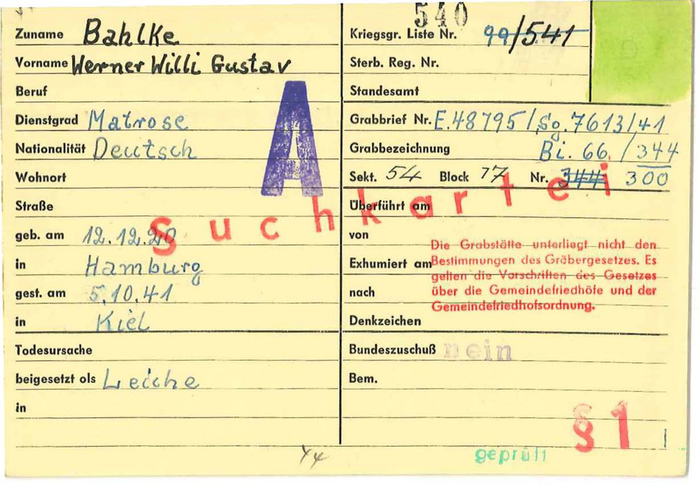 540
Zuname Bahlke
Vorname Werner Willi Gustav
Beruf
Dienstgrad Matrose
Nationalität Deutsch
Wohnort
Straße
geb. am 12.12.20
in Hamburg
gest. am 5.10.41
in Kiel
Todesursache
beigesetzt als Leiche
in
A
Suchkartei
Kriegsgr. Liste Nr. 99/541
Sterb. Reg. Nr.
Standesamt
Grabbrief Nr. E.48795/Sg.7613/41
Grabbezeichnung Bi. 66. / 344
Sekt. 54 Block 17 Nr. 344 300
Überführt am
von
Exhumiert am
nach
Denkzeichen
Bundeszuschuß nein
Bem.
Die Grabstätte unterliegt nicht den
Bestimmungen des Gräbergesetzes. Es
gelten die Vorschriften des Gesetzes
über die Gemeindefriedhöfe und der
Gemeindefriedhofsordnung.
§ 1
geprüft